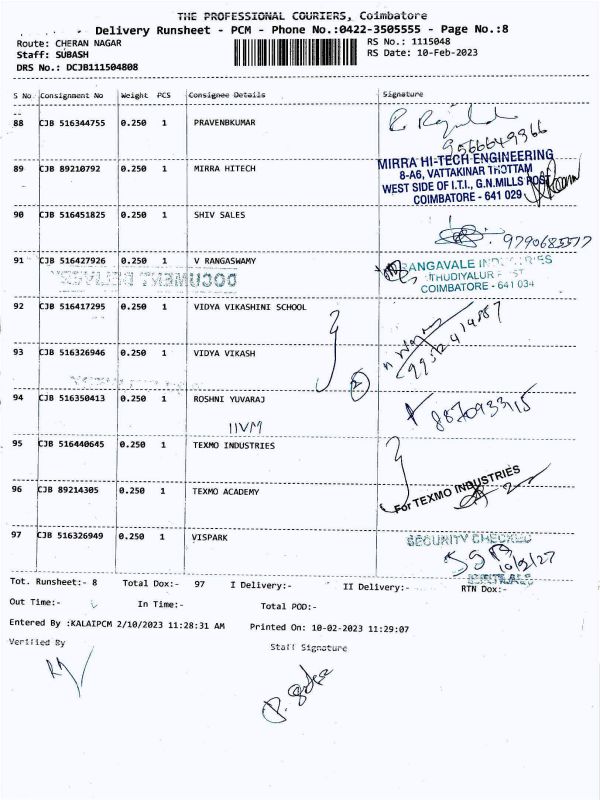 THE PROFESSIONAL COURIERS, Coimbatore
Delivery Runsheet - PCM - Phone No.:0422-3505555 - Page No.:8
Route: CHERAN NAGAR RS No.: 1115048
Staff: SUBASH RS Date: 10-Feb-2023
DRS No.: DCJB111504808
S No Consignment No Weight PCS Consignee Details Signature
88 CJB 516344755 0.250 1 PRAVENBKUMAR
9566649366
89 CJB 89210792 0.250 1 MIRRA HITECH
MIRRA HI-TECH ENGINEERING
8-A6, VATTAKINAR THOTTAM
WEST SIDE OF I.T.I., G.N.MILLS POST
COIMBATORE - 641 029
90 CJB 516451825 0.250 1 SHIV SALES
91 CJB 516427926 0.250 1 V RANGASWAMY
THUDIYALUR POST
COIMBATORE - 641 034
92 CJB 516417295 0.250 1 VIDYA VIKASHINI SCHOOL
93 CJB 516326946 0.250 1 VIDYA VIKASH
94 CJB 516350413 0.250 1 ROSHNI YUVARAJ
IIVM
8870933115
95 CJB 516440645 0.250 1 TEXMO INDUSTRIES
96 CJB 89214305 0.250 1 TEXMO ACADEMY
For TEXMO INDUSTRIES
97 CJB 516326949 0.250 1 VISPARK
SECURITY CHECKED
Tot. Runsheet:- 8 Total Dox:- 97 I Delivery:- II Delivery:- RTN Dox:-
Out Time:- In Time:- Total POD:-
Entered By :KALAIPCM 2/10/2023 11:28:31 AM Printed On: 10-02-2023 11:29:07
Verified By Staff Signature